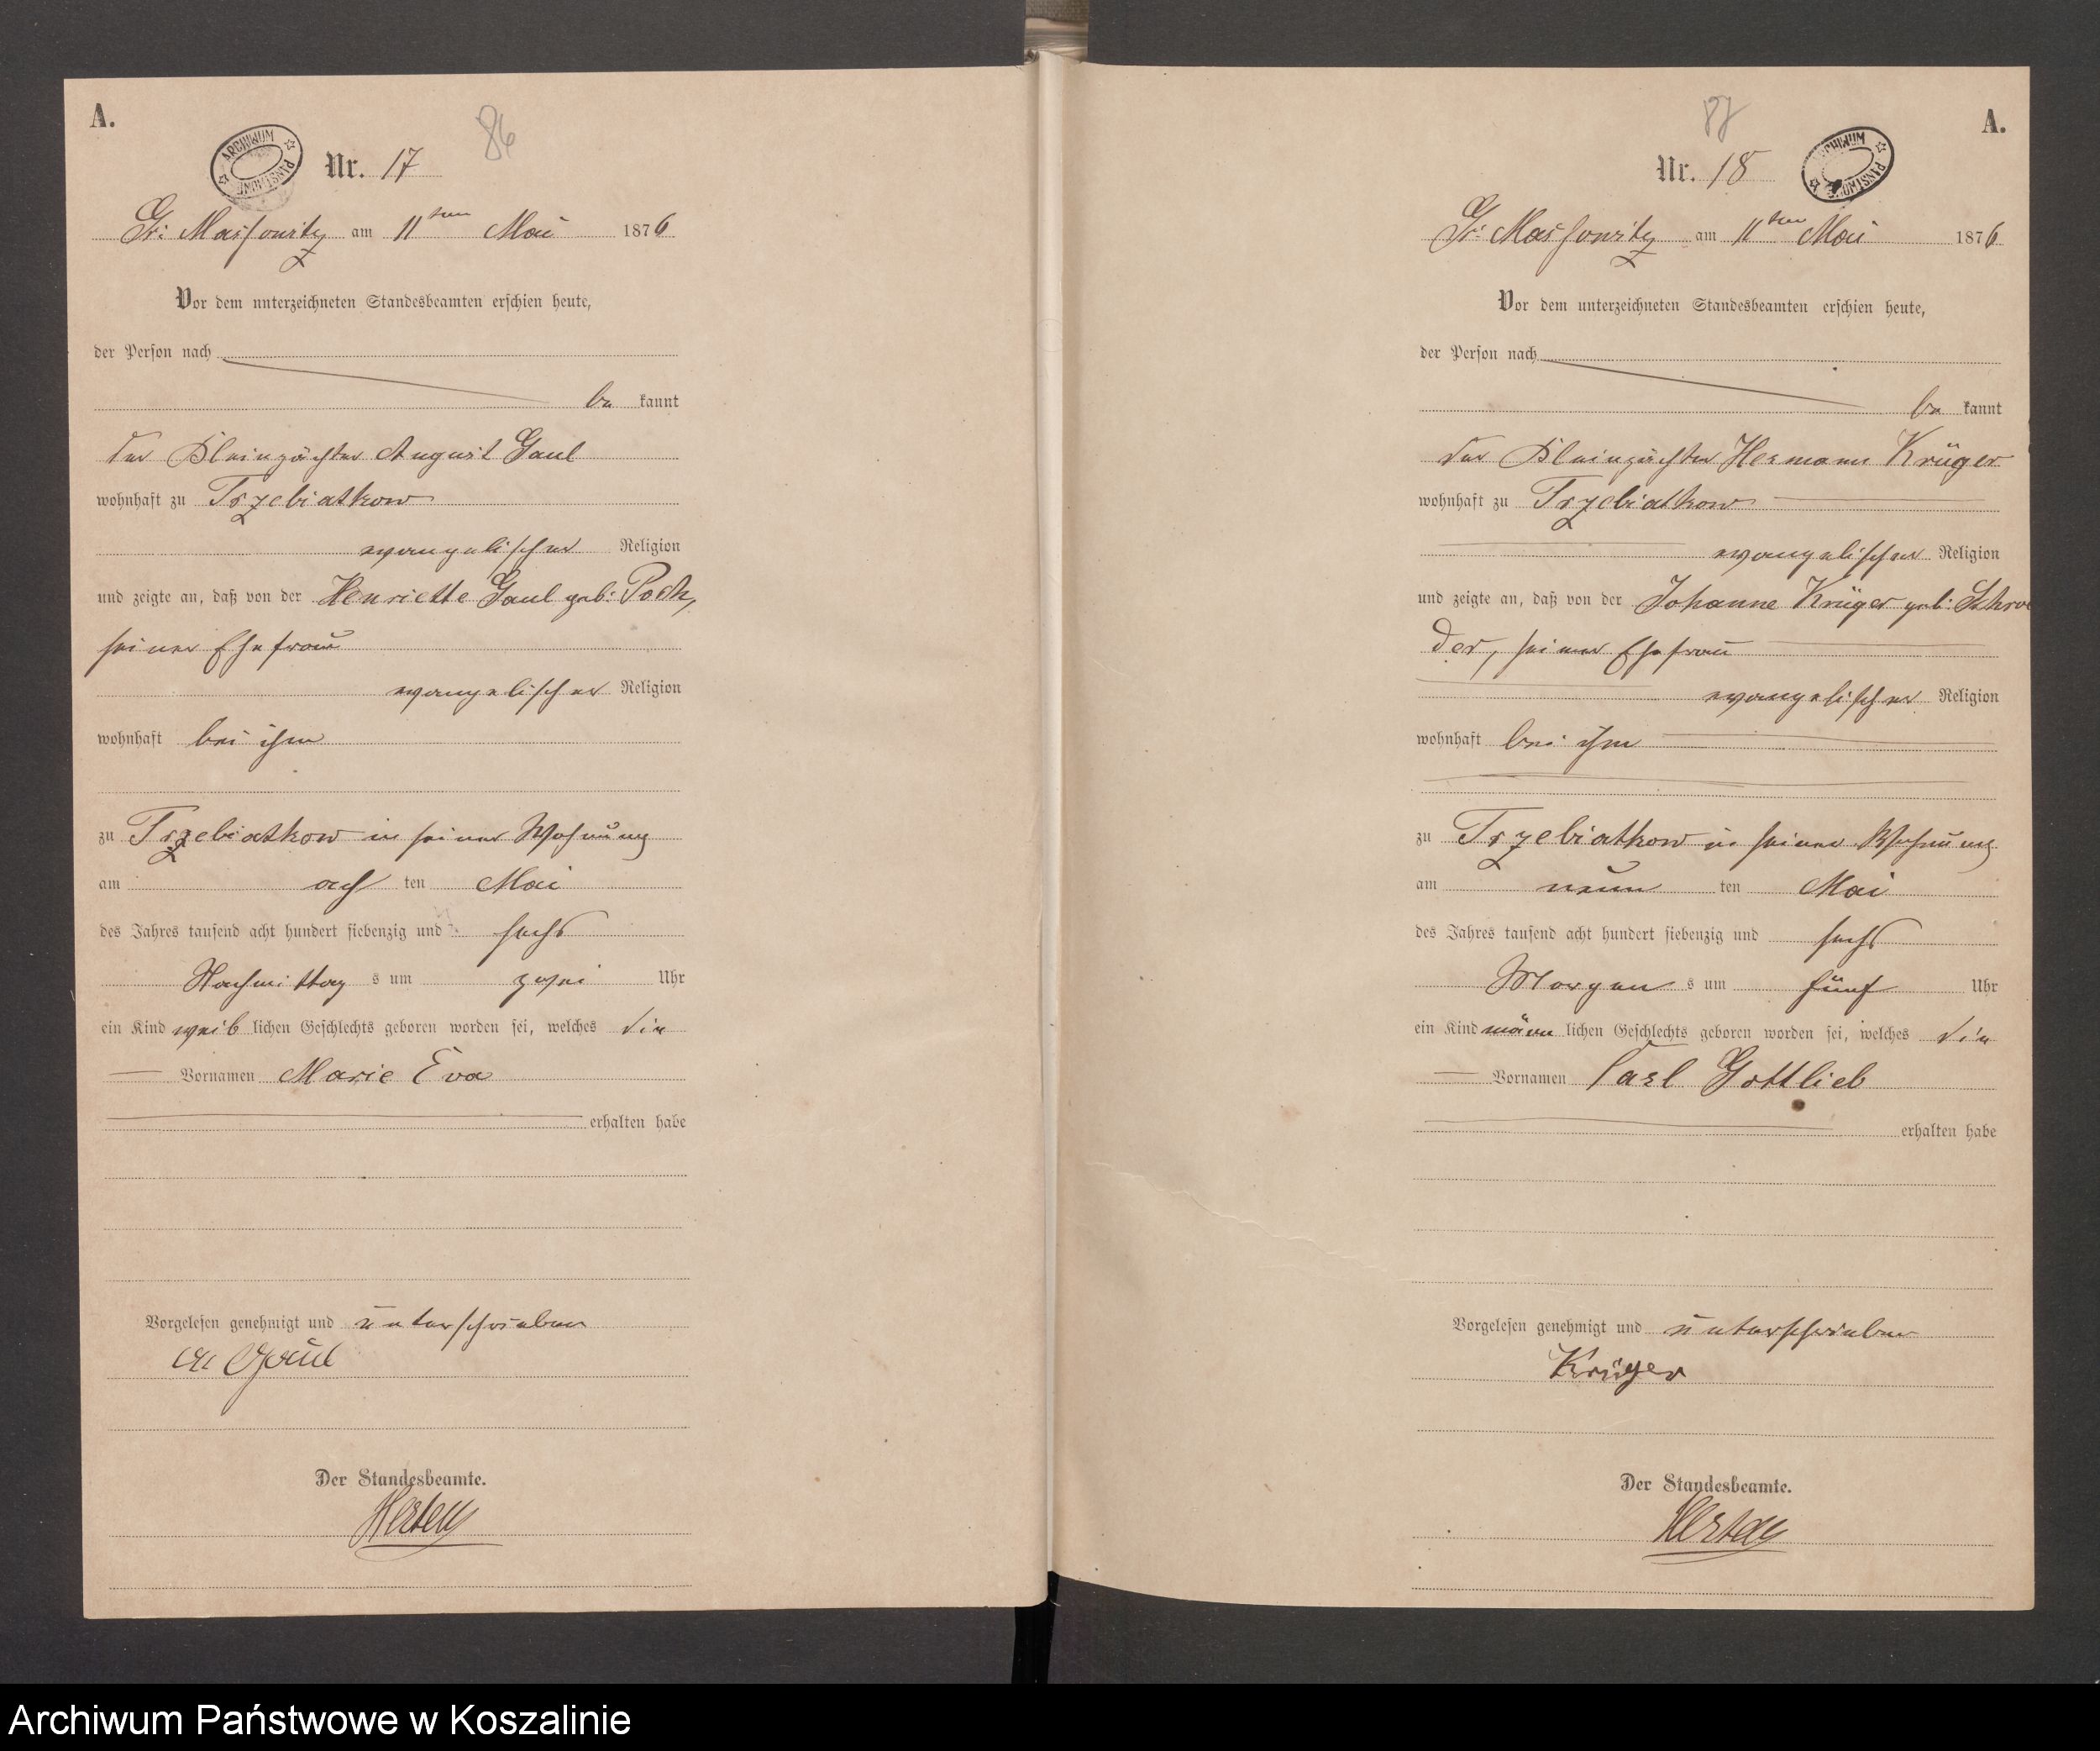 A.
86
ARCHIWUM PAŃSTWOWE
Nr. 17
Gr: Massowitz am 11ten Mai 1876
Vor dem unterzeichneten Standesbeamten erschien heute,
der Person nach
be kannt
der Kleinpächter August Gaul
wohnhaft zu Trzebiatkow
evangelischer Religion
und zeigte an, daß von der Henriette Gaul geb: Pock,
seiner Ehefrau
evangelischer Religion
wohnhaft bei ihm
zu Trzebiatkow in seiner Wohnung
am ach ten Mai
des Jahres tausend acht hundert siebenzig und sechs
Nachmittag s um zwei Uhr
ein Kind weib lichen Geschlechts geboren worden sei, welches die
Vornamen Marie Eva
erhalten habe
Vorgelesen genehmigt und unterschrieben
A Gaul
Der Standesbeamte.
A.
87
ARCHIWUM PAŃSTWOWE
Nr. 18
Gr: Massowitz am 11ten Mai 1876
Vor dem unterzeichneten Standesbeamten erschien heute,
der Person nach
be kannt
der Kleinpächter Hermann Krüger
wohnhaft zu Trzebiatkow
evangelischer Religion
und zeigte an, daß von der Johanne Krüger geb: Schroe
der, seiner Ehefrau
evangelischer Religion
wohnhaft bei ihm
zu Trzebiatkow in seiner Wohnung
am neun ten Mai
des Jahres tausend acht hundert siebenzig und sechs
Morgen s um fünf Uhr
ein Kind männ lichen Geschlechts geboren worden sei, welches die
Vornamen Carl Gottlieb
erhalten habe
Vorgelesen genehmigt und unterschrieben
Krüger
Der Standesbeamte.
Archiwum Państwowe w Koszalinie